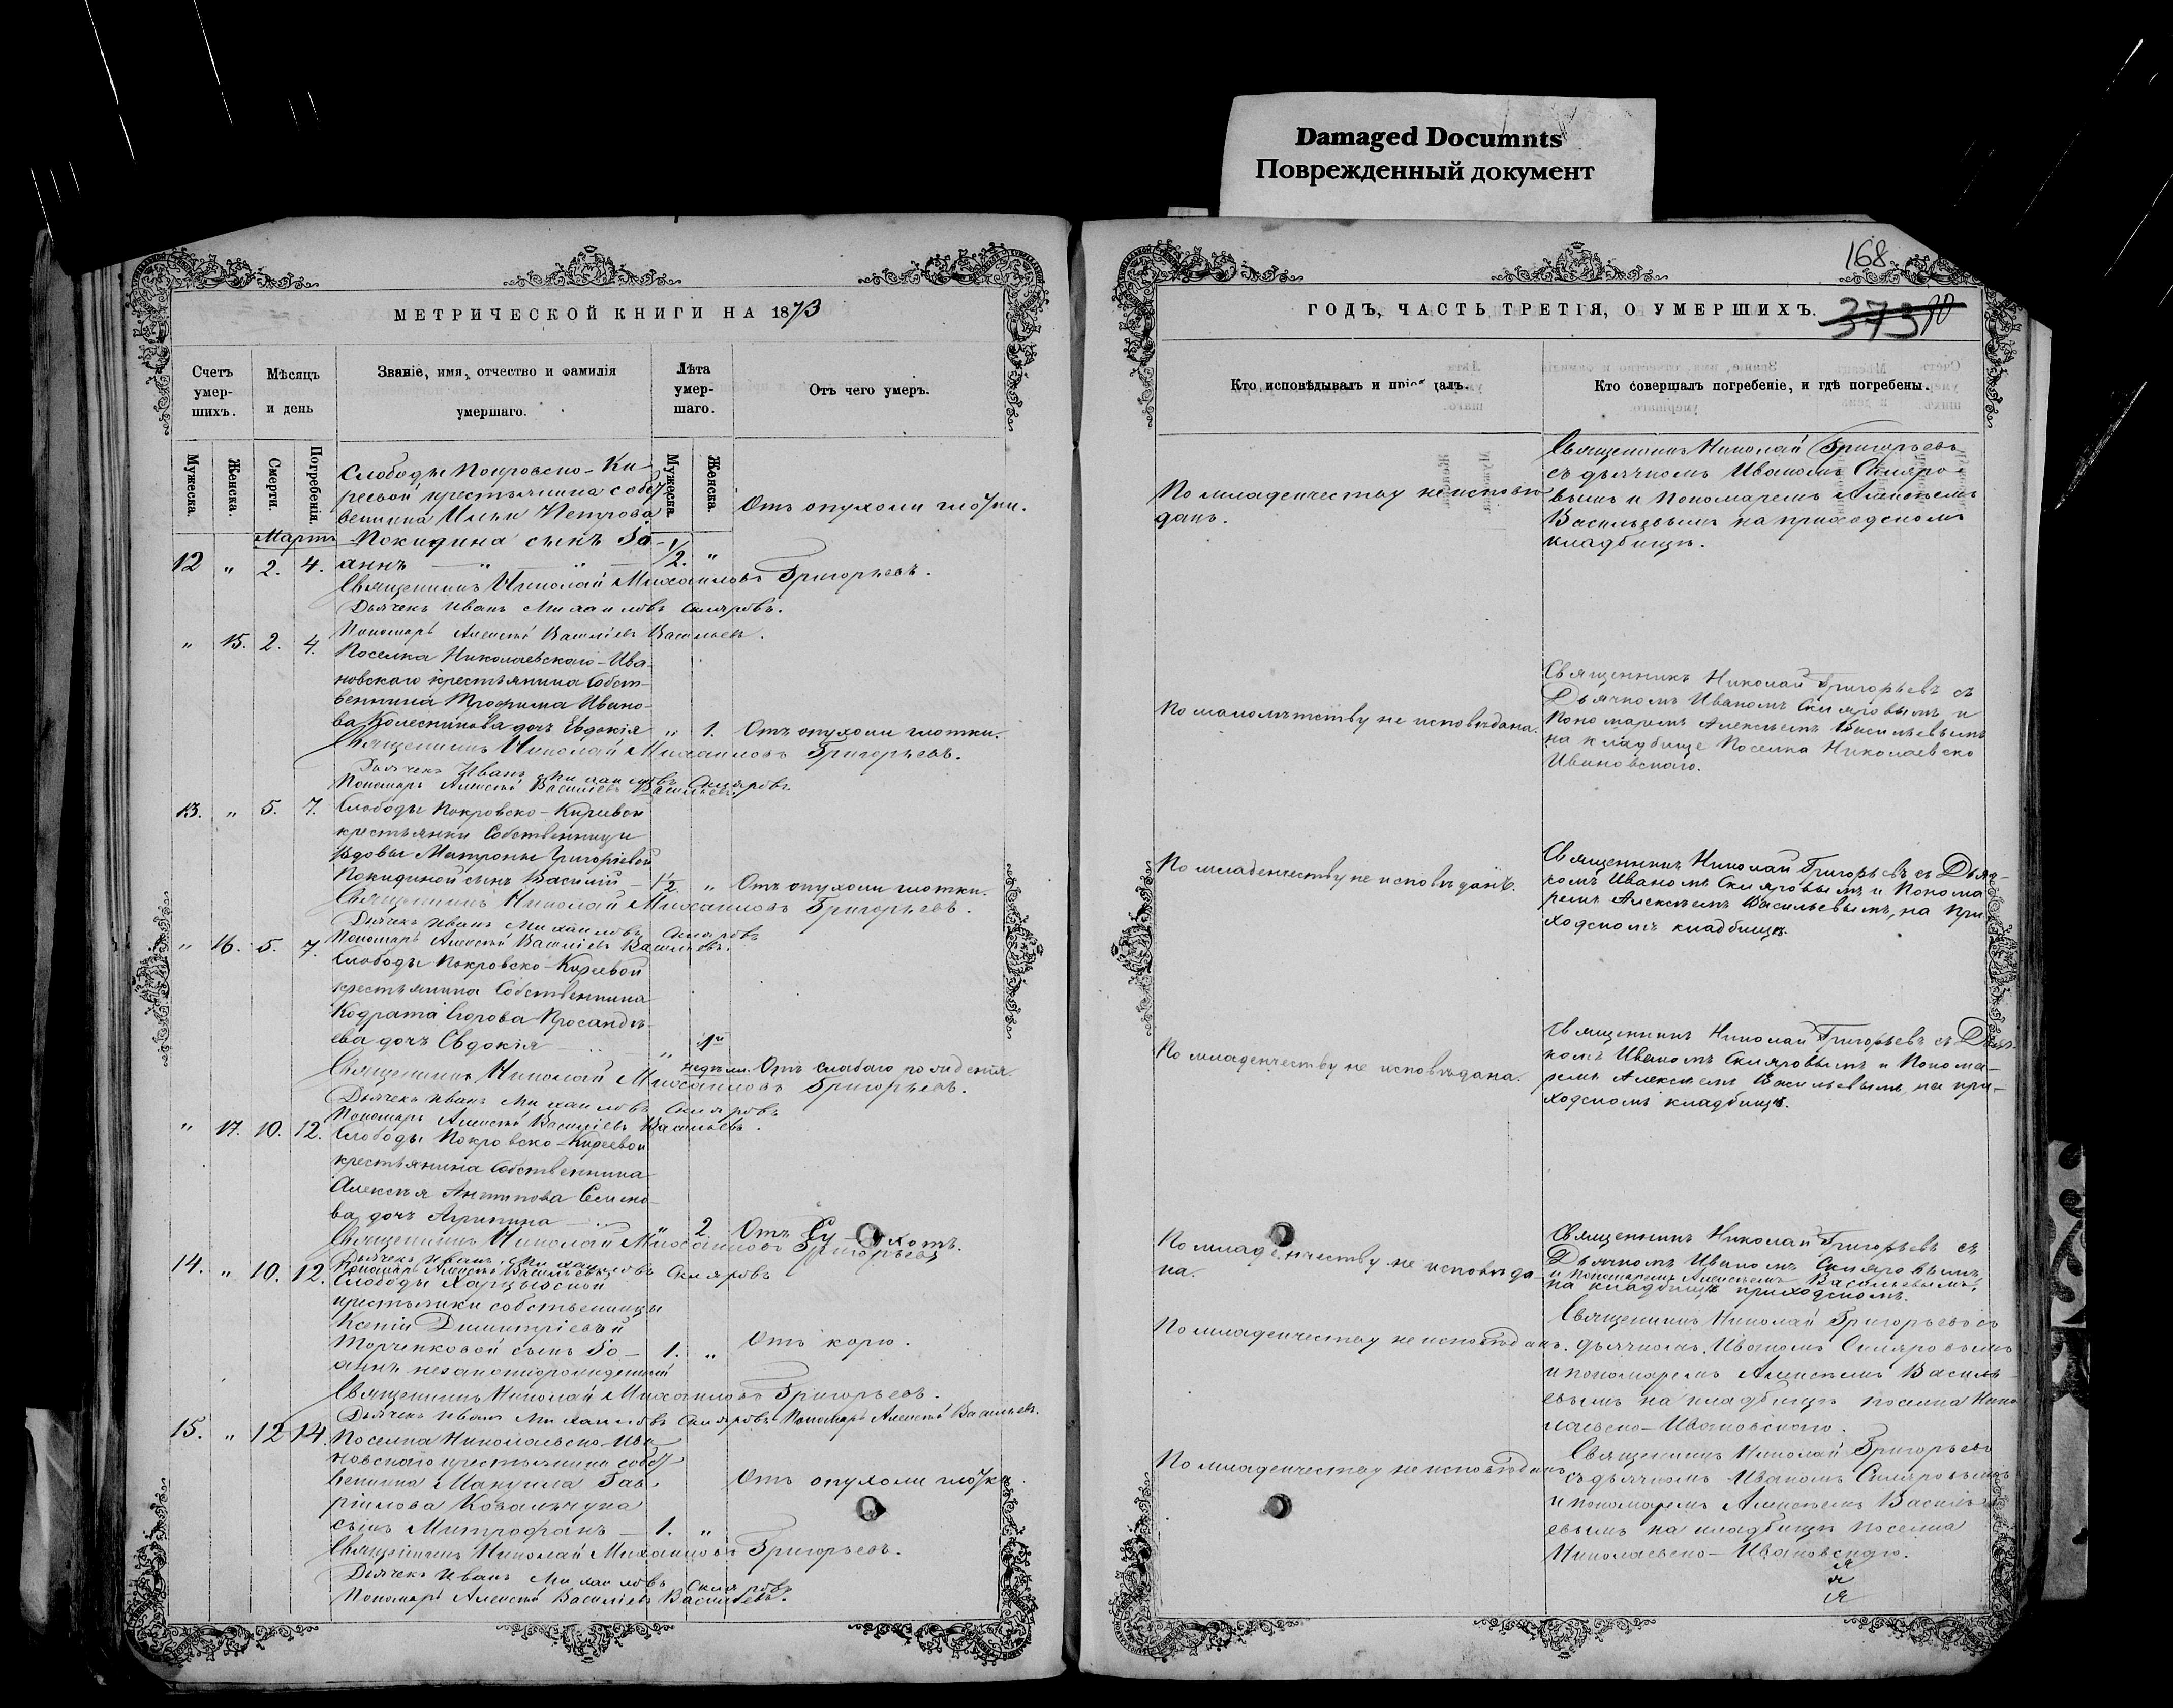 Damaged Documnts
Поврежденный документ
МЕТРИЧЕСКОЙ КНИГИ НА 1873
Счетъ умер-шихъ.
Мѣсяцъ и день
Званіе, имя, отчество и фамилія умершаго.
Лѣта умер-шаго.
Отъ чего умеръ.
Мужеска.
Женска.
Смерти.
Погребенія.
Мужеска.
Женска.
Слободы Покровско-Ки-
реевой крестьянина собст
венника Ильи Петрова
Мартъ Покидина сынъ Іо-
12 " 2. 4. аннъ — " — " 1/2. "
Отъ опухоли глотки.
Священникъ Николай Михаиловъ Григорьевъ.
Дьячекъ Иванъ Михаиловъ Скляровъ.
Пономарь Алексѣй Василіевъ Васильевъ.
" 15. 2. 4.
Поселка Николаевскаго-Ива-
новскаго крестьянина Собст-
венника Трофима Ивано-
ва Колесникова дочь Евдокія " 1. Отъ опухоли глотки.
Священникъ Николай Михаиловъ Григорьевъ.
Дьячекъ Иванъ Михаиловъ Скляровъ
Пономарь Алексѣй Василіевъ Васильевъ.
13. " 5. 7. Слободы Покровско-Киреевой
крестьянки Собственницы
Вдовы Матроны Григоріевой
Покидиной сынъ Василій — 1/2. " Отъ опухоли глотки.
Священникъ Николай Михаиловъ Григорьевъ.
Дьячекъ Иванъ Михаиловъ Скляровъ
Пономарь Алексѣй Василіевъ Васильевъ.
" 16. 5. 7.
Слободы Покровско-Киреевой
крестьянина Собственника
Кодрата Егорова
ева дочь Евдокія "
недѣли. Отъ слабаго рожденія.
Священникъ Николай Михаиловъ Григорьевъ.
Дьячекъ Иванъ Михаиловъ Скляровъ
Пономарь Алексѣй Василіевъ Васильевъ.
" 17. 10. 12. Слободы Покровско-Киреевой
крестьянина Собственника
Алексѣя Антипова
ва дочь Агрипина — " 2. Отъ
Священникъ Николай Михаиловъ Григорьевъ
Дьячекъ Иванъ Михаиловъ Скляровъ
Пономарь Алексѣй Васильевъ
14. " 10. 12. Слободы Харцызской
крестьянки собственницы
Ксеніи Димитріевой
Торчинковой сынъ Іо- 1. " Отъ кори.
аннъ незаконнорожденный
Священникъ Николай Михаиловъ Григорьевъ.
Дьячекъ Иванъ Михаиловъ Скляровъ Пономарь Алексѣй Васильевъ.
15. " 12 14. Поселка Николаевско-Ива-
новскаго крестьянина собст
венника Макуила Гав-
ріилова Ковальчука
Отъ опухоли глотки.
сынъ Митрофанъ — 1. "
Священникъ Николай Михаиловъ Григорьевъ.
Дьячекъ Иванъ Михаиловъ Скляровъ
Пономарь Алексѣй Василіевъ Васильевъ.
168
ГОДЪ, ЧАСТЬ ТРЕТІЯ, О УМЕРШИХЪ.
Кто исповѣдывалъ и
Кто совершалъ погребеніе, и гдѣ погребены.
По младенчеству не исповѣ
данъ.
Священникъ Николай Григорьевъ
съ дьячкомъ Иваномъ Скляро-
вымъ и Пономаремъ Алексѣемъ
Васильевымъ на приходскомъ
кладбищѣ.
По малолѣтству не исповѣдана.
Священникъ Николай Григорьевъ съ
Дьячкомъ Иваномъ Скляровымъ и
Пономаремъ Алексѣемъ Васильевымъ
на кладбище Поселка Николаевско
Ивановскаго.
По младенчеству не исповѣданъ.
Священникъ Николай Григорьевъ съ Дьяч-
комъ Иваномъ Скляровымъ и Понома
ремъ Алексѣемъ Васильевымъ, на при
ходскомъ кладбищѣ.
По младенчеству не исповѣдана.
Священникъ Николай Григорьевъ съ Дьяч-
комъ Иваномъ Скляровымъ и Понома-
ремъ Алексѣемъ Васильевымъ, на при-
ходскомъ кладбищѣ.
По младенчеству не исповѣда-
на.
Священникъ Николай Григорьевъ съ
Дьячкомъ Иваномъ Скляровымъ
и Пономаремъ Алексѣемъ Васильевымъ,
на кладбищѣ приходскомъ.
По младенчеству не исповѣданъ.
Священникъ Николай Григорьевъ съ
дьячкомъ Иваномъ Скляровымъ
и пономаремъ Алексѣемъ Василь-
евымъ на кладбищѣ поселка Нико
лаевско-Ивановскаго.
По младенчеству не исповѣданъ
Священникъ Николай Григорьевъ
съ дьячкомъ Иваномъ Скляровымъ
и пономаремъ Алексѣемъ Василь-
евымъ на кладбищѣ поселка
Николаевско-Ивановскаго.